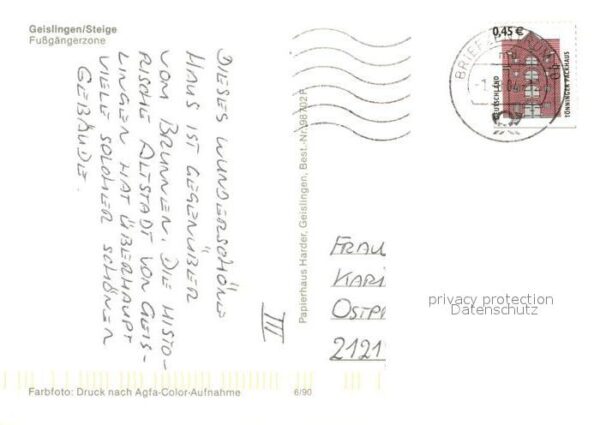 Geislingen/Steige
Fußgängerzone
DIESES WUNDERSCHÖNE
HAUS IST GEGENÜBER
VOM BRUNNEN. DIE HISTO-
RISCHE ALTSTADT VON GEIS-
LINGEN HAT ÜBERHAUPT
VIELE SOLCHER SCHÖNEN
GEBÄUDE.
III
Papierhaus Harder, Geislingen, Best.-Nr. 98702F
0,45 €
DEUTSCHLAND
TÖNNINGER PACKHAUS
BRIEFZENTRUM
FRAU
KARI
OSTPR
2121
privacy protection
Datenschutz
Farbfoto: Druck nach Agfa-Color-Aufnahme
6/90